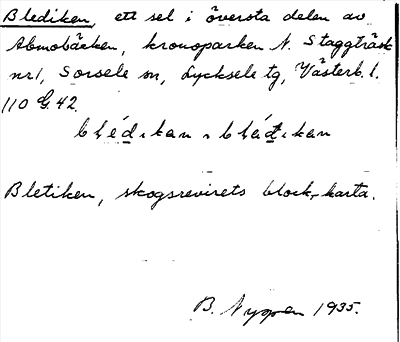 Blediken, ett sel i översta delen av
Abmobäcken, kronoparken N. Staggträsk
nr1, Sorsele sn, Lycksele tg, Västerb. l.
110 G. 42.
Bletiken, skogsrevirets block-karta.
B. Nygren 1935.